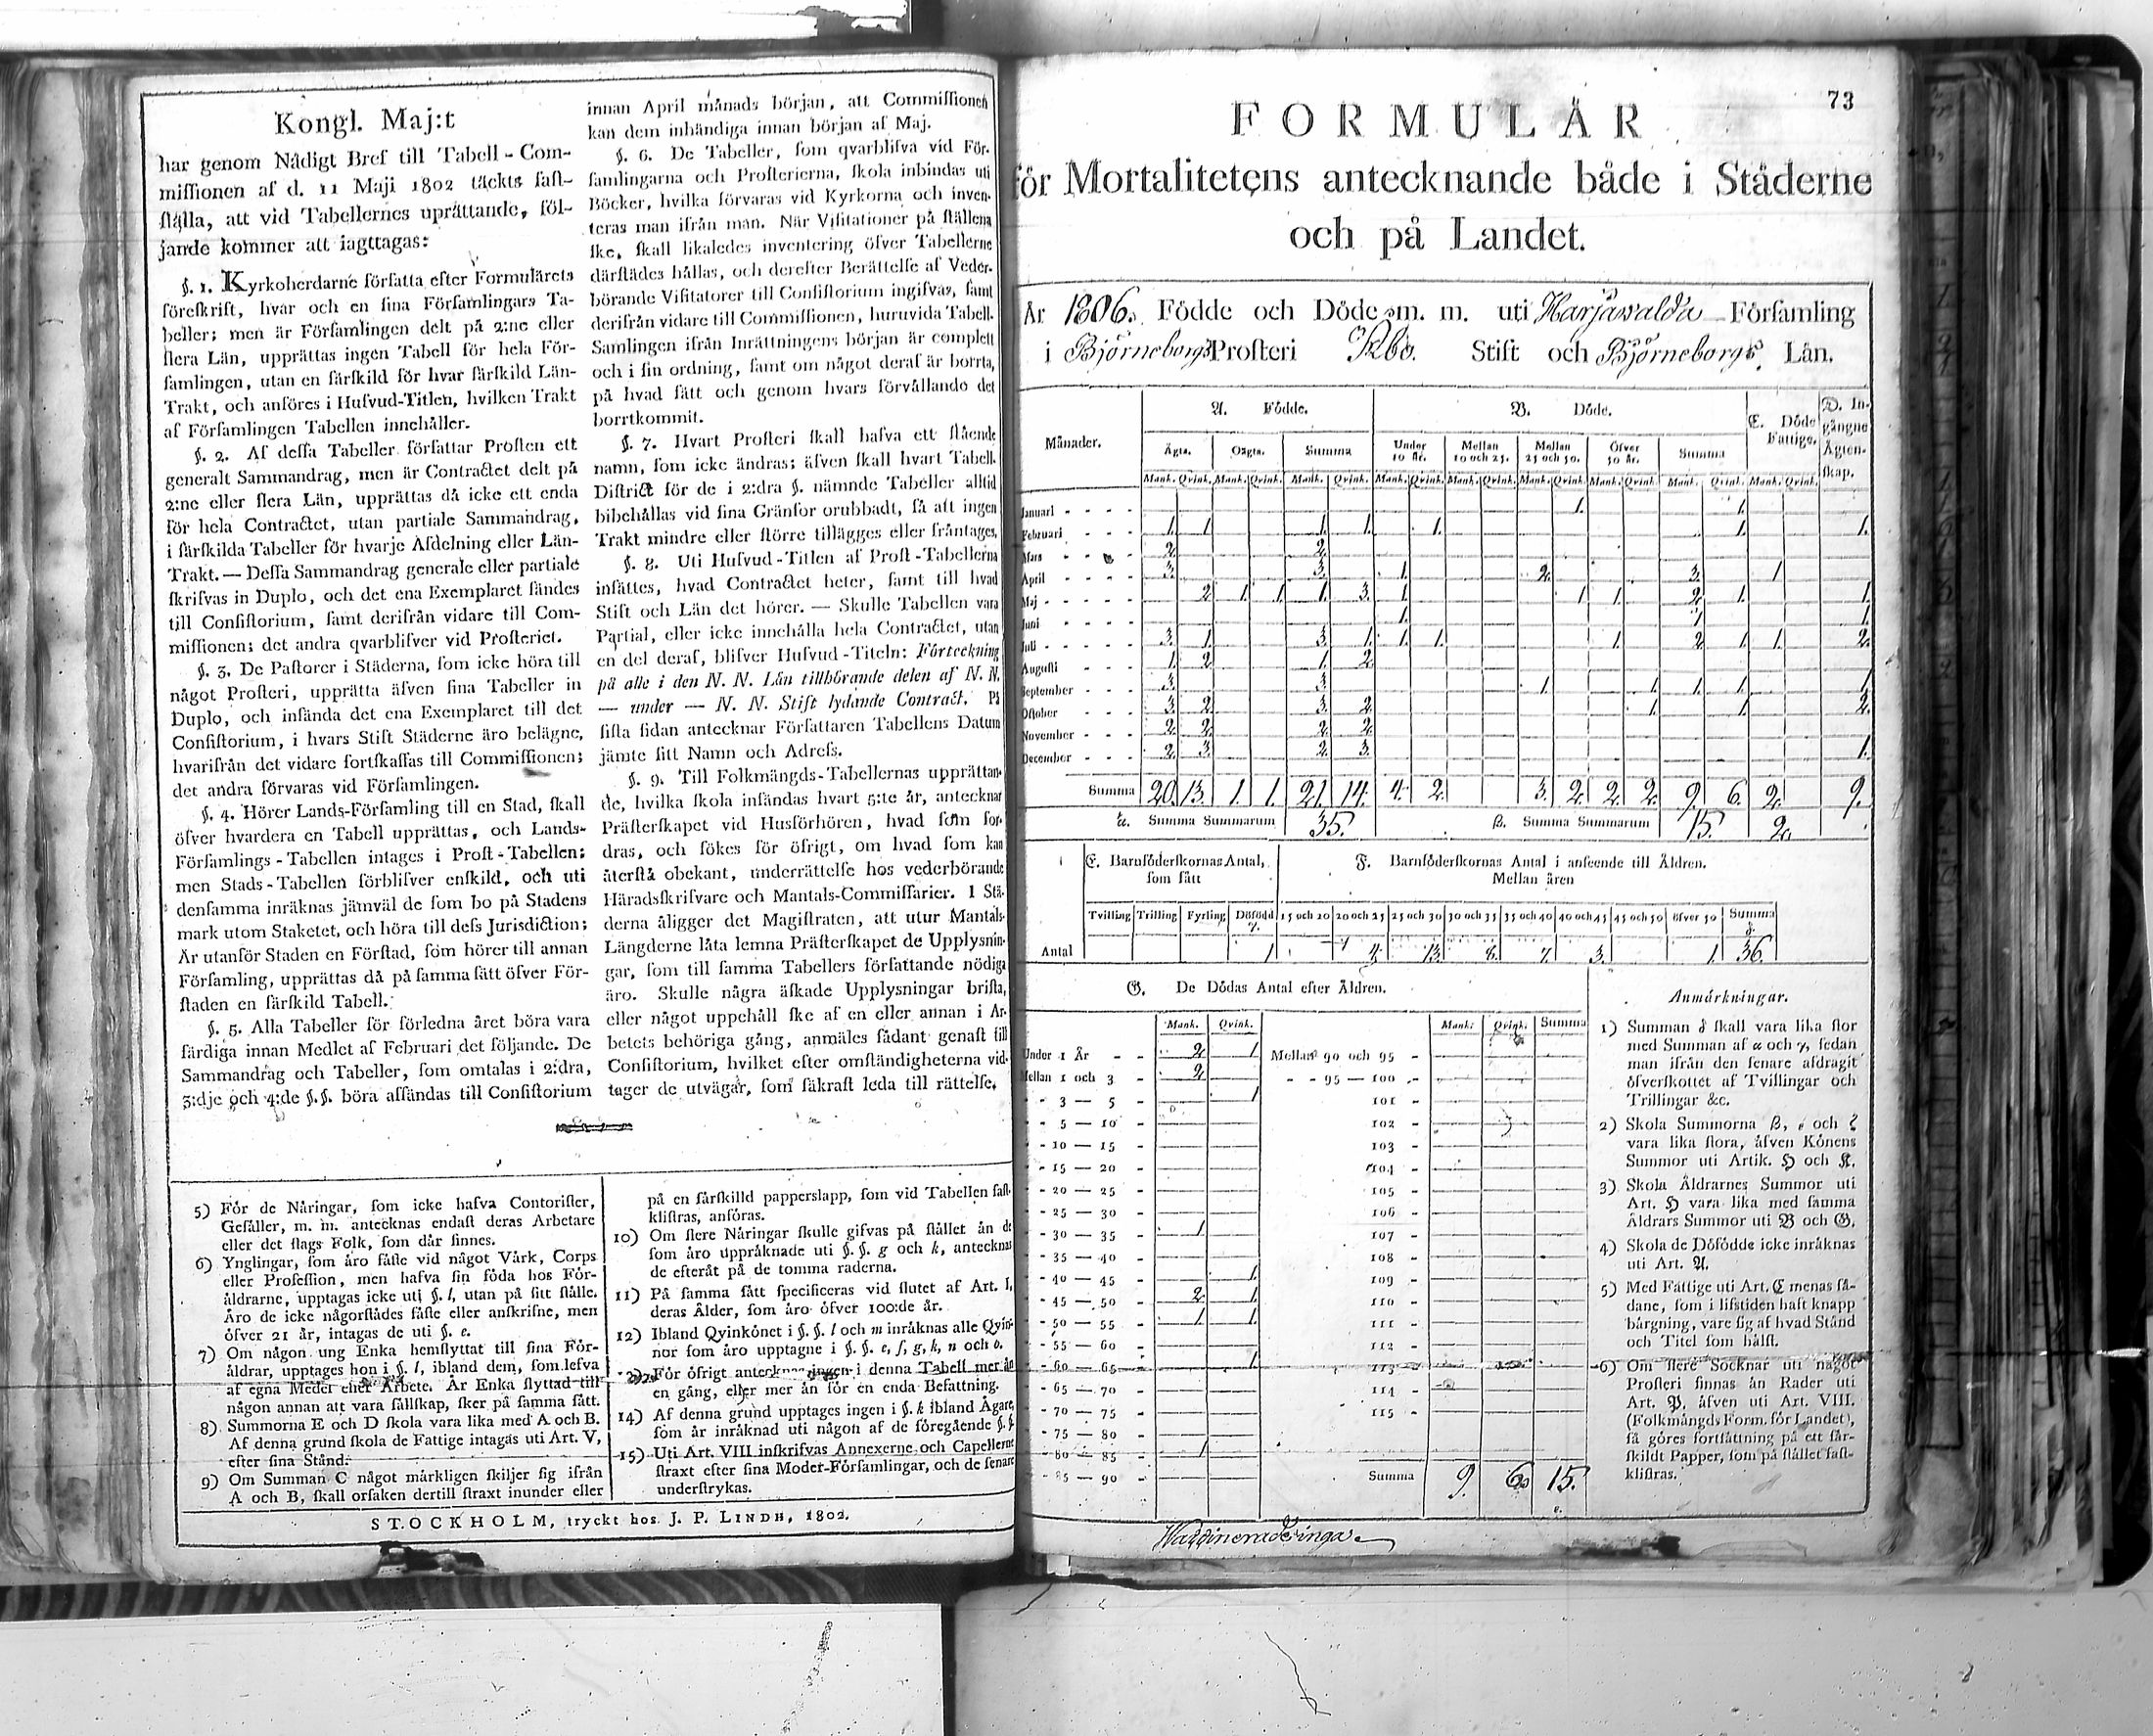 Kongl. Maj:t
har genom Nådigt Bref till Tabell-Com-
miſſionen af d. 11 Maji 1802 täckts faſt-
ſtälla, att vid Tabellernes uprättande, föl-
jande kommer att iagttagas:
§. 1. Kyrkoherdarne författa efter Formulärets
föreſkrift, hvar och en ſina Förſamlingars Ta-
beller; men är Förſamlingen delt på 2:ne eller
flera Län, upprättas ingen Tabell för hela För-
ſamlingen, utan en ſärſkild för hvar ſärſkild Län-
Trakt, och anföres i Hufvud-Titlen, hvilken Trakt
af Förſamlingen Tabellen innehåller.
§. 2. Af deſſa Tabeller författar Proſten ett
generalt Sammandrag, men är Contractet delt på
2:ne eller flera Län, upprättas då icke ett enda
för hela Contractet, utan partiale Sammandrag,
i ſärſkilda Tabeller för hvarje Afdelning eller Län-
Trakt. — Deſſa Sammandrag generale eller partiale
ſkrifvas in Duplo, och det ena Exemplaret ſändes
till Conſiſtorium, ſamt derifrån vidare till Com-
miſſionen; det andra qvarblifver vid Proſteriet.
§. 3. De Paſtorer i Städerna, ſom icke höra till
något Proſteri, upprätta äfven ſina Tabeller in
Duplo, och inſända det ena Exemplaret till det
Conſiſtorium, i hvars Stift Städerne äro belägne,
hvarifrån det vidare fortſkaffas till Commiſſionen;
det andra förvaras vid Förſamlingen.
§. 4. Hörer Lands-Förſamling till en Stad, ſkall
öfver hvardera en Tabell upprättas, och Lands-
Förſamlings-Tabellen intages i Proſt-Tabellen;
men Stads-Tabellen förblifver enſkild, och uti
denſamma inräknas jämväl de ſom bo på Stadens
mark utom Staketet, och höra till deſs Jurisdiction;
Är utanför Staden en Förſtad, ſom hörer till annan
Förſamling, upprättas då på ſamma ſätt öfver För-
ſtaden en ſärſkild Tabell.
§. 5. Alla Tabeller för förledna året böra vara
färdiga innan Medlet af Februari det följande. De
Sammandrag och Tabeller, ſom omtalas i 2:dra,
3:dje och 4:de §.§. böra afſändas till Conſiſtorium
innan April månads början, att Commiſſionen
kan dem inhändiga innan början af Maj.
§. 6. De Tabeller, ſom qvarblifva vid För-
ſamlingarna och Proſterierna, ſkola inbindas uti
Böcker, hvilka förvaras vid Kyrkorna och inven-
teras man ifrån man. När Viſitationer på ſtällena
ſke, ſkall likaledes inventering öfver Tabellerne
därſtädes hållas, och derefter Berättelſe af Veder-
börande Viſitatorer till Conſiſtorium ingifvas, ſamt
derifrån vidare till Commiſſionen, huruvida Tabell-
Samlingen ifrån Inrättningens början är complett
och i ſin ordning, ſamt om något deraf är borrta,
på hvad ſätt och genom hvars förvållande det
borrtkommit.
§. 7. Hvart Proſteri ſkall hafva ett ſtående
namn, ſom icke ändras; äfven ſkall hvart Tabell-
Diſtrict för de i 2:dra §. nämnde Tabeller alltid
bibehållas vid ſina Gränſor orubbadt, ſå att ingen
Trakt mindre eller ſtörre tillägges eller fråntages.
§. 8. Uti Hufvud-Titlen af Proſt-Tabellerna
inſättes, hvad Contractet heter, ſamt till hvad
Stift och Län det hörer. — Skulle Tabellen vara
Partial, eller icke innehålla hela Contractet, utan
en del deraf, blifver Hufvud-Titeln: Förteckning
på alle i den N. N. Län tillhörande delen af N. N.
— under — N. N. Stift lydande Contract. På
ſiſta ſidan antecknar Författaren Tabellens Datum
jämte ſitt Namn och Adreſs.
§. 9. Till Folkmängds-Tabellernas upprättan-
de, hvilka ſkola inſändas hvart 5:te år, antecknar
Präſterſkapet vid Husförhören, hvad ſom for-
dras, och ſökes för öfrigt, om hvad ſom kan
återſtå obekant, underrättelſe hos vederbörande
Häradsſkrifvare och Mantals-Commiſſarier. I Stä-
derna åligger det Magiſtraten, att utur Mantals-
Längderne låta lemna Präſterſkapet de Upplysnin-
gar, ſom till ſamma Tabellers författande nödiga
äro. Skulle några äſkade Upplysningar briſta,
eller något uppehåll ſke af en eller annan i Ar-
betets behöriga gång, anmäles ſådant genaſt till
Conſiſtorium, hvilket efter omſtändigheterna vid-
tager de utvägar, ſom ſäkraſt leda till rättelſe.
5) För de Näringar, ſom icke hafva Contoriſter,
Geſäller, m. m. antecknas endaſt deras Arbetare
eller det ſlags Folk, ſom där finnes.
6) Ynglingar, ſom äro fäſte vid något Värk, Corps
eller Profeſſion, men hafva ſin föda hos För-
äldrarne, upptagas icke uti §. l, utan på ſitt ſtälle.
Äro de icke någorſtädes fäſte eller anſkrifne, men
öfver 21 år, intagas de uti §. e.
7) Om någon ung Enka hemflyttat till ſina För-
äldrar, upptages hon i §. l, ibland dem, ſom lefva
af egna Medel eller Arbete. Är Enka flyttad till
någon annan att vara ſällſkap, ſker på ſamma ſätt.
8) Summorna E och D ſkola vara lika med A och B.
Af denna grund ſkola de Fattige intagas uti Art. V,
efter ſina Stånd.
9) Om Summan C något märkligen ſkiljer ſig ifrån
A och B, ſkall orſaken dertill ſtraxt inunder eller
på en ſärſkilld papperslapp, ſom vid Tabellen faſt-
kliſtras, anföras.
10) Om flere Näringar ſkulle gifvas på ſtället än de
ſom äro uppräknade uti §. §. g och k, antecknas
de efteråt på de tomma raderna.
11) På ſamma ſätt ſpecificeras vid ſlutet af Art. I,
deras Ålder, ſom äro öfver 100:de år.
12) Ibland Qvinkönet i §. §. l och m inräknas alle Qvin-
nor ſom äro upptagne i §. §. e, f, g, k, n och o.
För öfrigt antecknas ingen i denna Tabell mer än
en gång, eller mer än för en enda Befattning.
14) Af denna grund upptages ingen i §. k ibland Ägare,
ſom är inräknad uti någon af de föregående §. §.
15) Uti Art. VIII inſkrifvas Annexerne och Capellerne
ſtraxt efter ſina Moder-Förſamlingar, och de ſenare
underſtrykas.
STOCKHOLM, tryckt hos J. P. LINDH, 1802.
73
FORMULÄR
för Mortalitetens antecknande både i Städerne
och på Landet.
År 1806. Födde och Döde m. m. uti Harjawalda Förſamling
i Björneborgs Proſteri Åbo. Stift och Björneborgs Län.
Månader. A. Födde. B. Döde. C. Döde Fattige. D. Ingångne Ägtenſkap.
Ägta. Oägta. Summa Under 10 År. Mellan 10 och 25. Mellan 25 och 50. Öfver 50 År. Summa
Mank. Qvink. Mank. Qvink. Mank. Qvink. Mank. Qvink. Mank. Qvink. Mank. Qvink. Mank. Qvink. Mank. Qvink. Mank. Qvink.
Januari 1. 1.
Februari 1. 1 1 1. 1. 1. 1.
Mars 2. 2.
April 3. 3. 1. 2. 3. 1
Maj 2 1. 1 1. 3. 1. 1 1. 2. 1. 1.
Juni 1. 1 1.
Juli 3. 1. 3. 1. 1. 1. 1. 2. 1 1. 2.
Auguſti 1. 2 1. 2.
September 3. 3. 1. 1. 1. 1. 1
October 3. 2 3. 2. 1. 1. 2.
November 2. 2. 2. 2.
December 2. 3. 2. 3. 1.
Summa 20. 13. 1. 1. 21. 14. 4. 2. 3. 2. 2. 2. 9. 6. 2. 9.
α. Summa Summarum 35. β. Summa Summarum 15. 2.
E. Barnföderſkornas Antal, ſom fått
F. Barnföderſkornas Antal i anſeende till Åldren.
Mellan åren
Tvilling Trilling Fyrling Dödfödd γ. 15 och 20 20 och 25 25 och 30 30 och 35 35 och 40 40 och 45 45 och 50 öfver 50 Summa δ.
Antal 1 4. 13. 8. 7. 3. 1. 36.
G. De Dödas Antal efter Åldren.
Mank. Qvink. Mank. Qvink. Summa
Under 1 År 2. 1 Mellan 90 och 95
Mellan 1 och 3 2. 95 — 100
3 — 5 1 101
5 — 10 102
10 — 15 103
15 — 20 104
20 — 25 105
25 — 30 106
30 — 35 1 107
35 — 40 108
40 — 45 1. 109
45 — 50 2. 1 110
50 — 55 1 1. 111
55 — 60 112
60 — 65 1 113
65 — 70 114
70 — 75 115
75 — 80
80 — 85 1
85 — 90 Summa 9. 6. 15.
ε.
Anmärkningar.
1) Summan δ ſkall vara lika ſtor
med Summan af α och γ, ſedan
man ifrån den ſenare afdragit
öfverſkottet af Tvillingar och
Trillingar &c.
2) Skola Summorna β, ε och ζ
vara lika ſtora, äfven Könens
Summor uti Artik. H och K.
3) Skola Åldrarnes Summor uti
Art. H vara lika med ſamma
Åldrars Summor uti B och G.
4) Skola de Dödfödde icke inräknas
uti Art. A.
5) Med Fattige uti Art. C menas ſå-
dane, ſom i lifstiden haft knapp
bärgning, vare ſig af hvad Stånd
och Titel ſom hälſt.
6) Om flere Socknar uti något
Proſteri finnas än Rader uti
Art. P, äfven uti Art. VIII.
(Folkmängds Form. för Landet),
ſå göres fortſättning på ett ſär-
ſkildt Papper, ſom på ſtället faſt-
kliſtras.